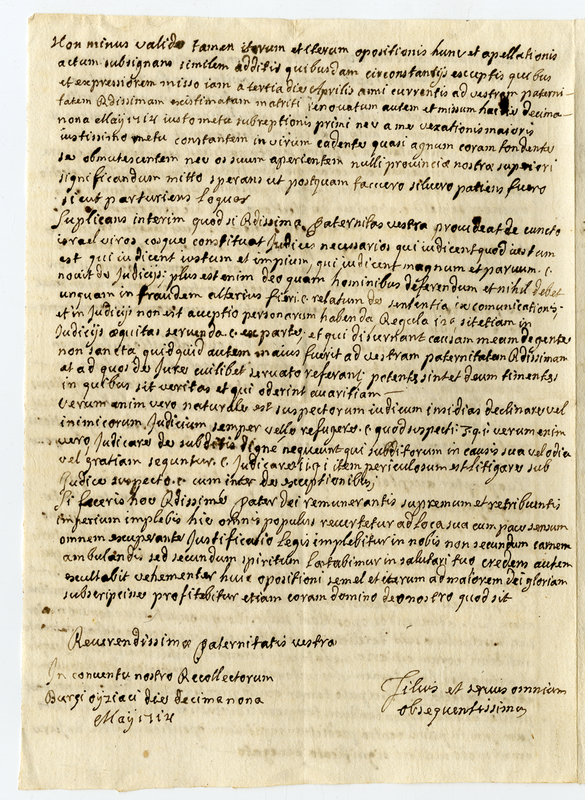 Non minus valido tamen iterum et iterum opositionis hunc et apellationis
actum subsignans similem additis quibusdam circonstantijs exceptis quibus
et expressiorem misso iam a tertia die Aprilis anni currentis ad vestram paterni-
tatem Rdissimam existimatam matriti renovatum autem et missum hac die decima-
nona Maij 1712 iusto metu subreptionis primi nec a me vexationis maioris
iustissimo metu constantem in virum cadente quasi agnum coram tondente
se obmutescentem nec os suum aperientem nulli provinciæ nostræ superiori
significandum mitto sperans ut postquam tacuero siluero patiens fuero
sicut parturiens loquar
Suplicans interim quod si Rdissima paternitas vestra provideat de cuncto
israel viros eosque constituat Judices necessarios qui iudicent quod iustum
est qui iudicent iustum et impium, qui iudicent magnum et parvum . c.
novit de Judicijs: plus est enim deo quam hominibus deferendum et nihil debet
unquam in fraudem alterius fieri . c. relatum de sententia
et in Judicijs non est aceptio personarum habenda Regula 12a, sit etiam in
Judicijs æquitas servanda . c. ex parte; et qui discutiant causam meam de gente
non sancta quidquid autem maius fuerit ad vestram paternitatem Rdissimam
et ad quos de Jure cuilibet servato referant; potentes sint et deum timentes
in quibus sit veritas et qui oderint avaritiam
Verum enim vero naturale est suspectorum iudicum insidias declinare vel
inimicorum Judicium semper velle refugere . c. quod suspecti 3.q.i. verum enim
vero Judicare de subditis digne nequeunt qui subditorum in causis sua vel odia
vel gratiam sequntur . c. Judicare item periculosum est litigare sub
Judice suspecto . c. cum inter de exceptionibus;
Si feceris hoc Rdissime pater dei remunerantis supremum et retribuentis
imperium implebis hic omnis populus revertetur ad loca sua cum pace sensum
omnem exuperante Justificatio legis implebitur in nobis non secundum carnem
ambulandis sed secundum spiritum lætabimur in salutari tuo credens autem
exultabit vehementer huic opositioni semel et iterum ad maiorem dei gloriam
subscripcisse profitebitur etiam coram domino deo nostro quod sit
Reverendissimæ paternitatis vestræ
In conventu nostro Recollectorum
Burgi die decimanona
Maij 1712
Filius et servus omnium
obsequentissimus